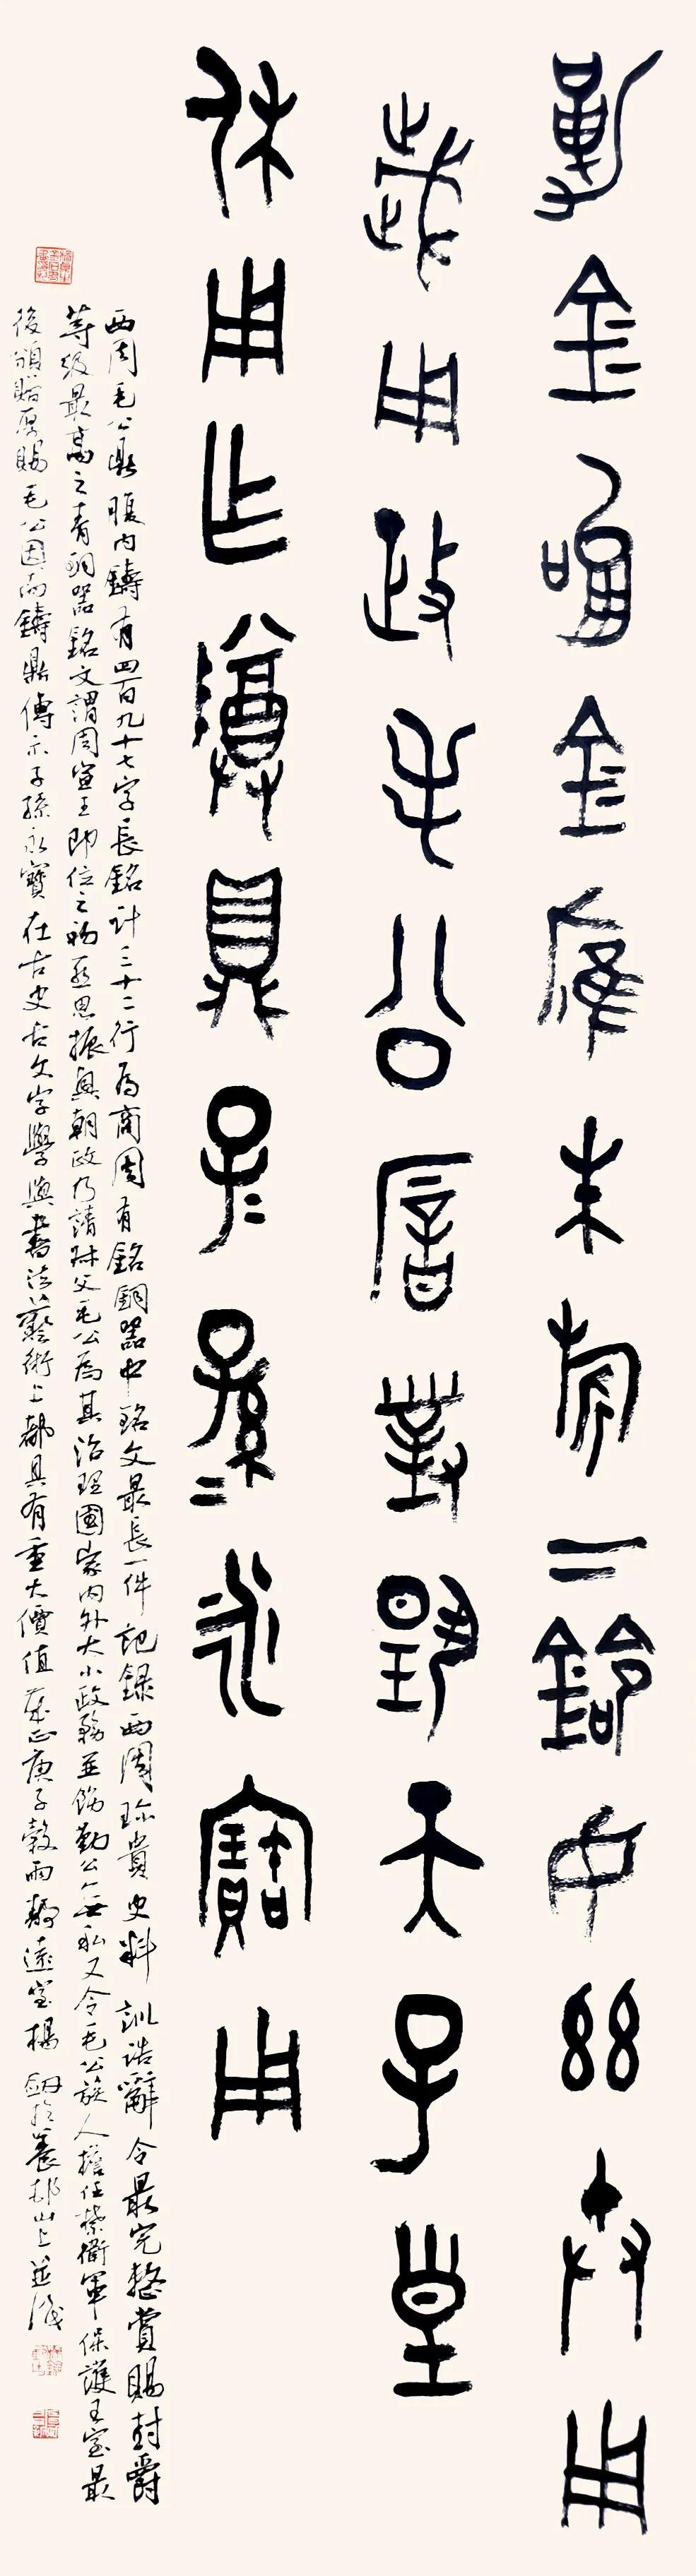 勒金𠻮金雁朱旂二鈴女茲用
歲用政毛公厝對揚天子皇
休用乍尊鼎子=孫=永寶用
西周毛公鼎腹内鑄有四百九十七字長銘計三十二行為商周有銘銅器中銘文最長一件記錄西周珍貴史料訓誥辭令最完整賞賜封爵
等級最高之青銅器銘文謂周宣王即位之初亟思振興朝政乃請叔父毛公為其治理國家内外大小政務並飭勤公無私又令毛公族人擔任禁衛軍保護王室最
後頒贈厚賜毛公因而鑄鼎傳示子孫永寶在古史古文字學與書法藝術上都具有重大價值歲正庚子穀雨遠堂楊於養邨山上並識